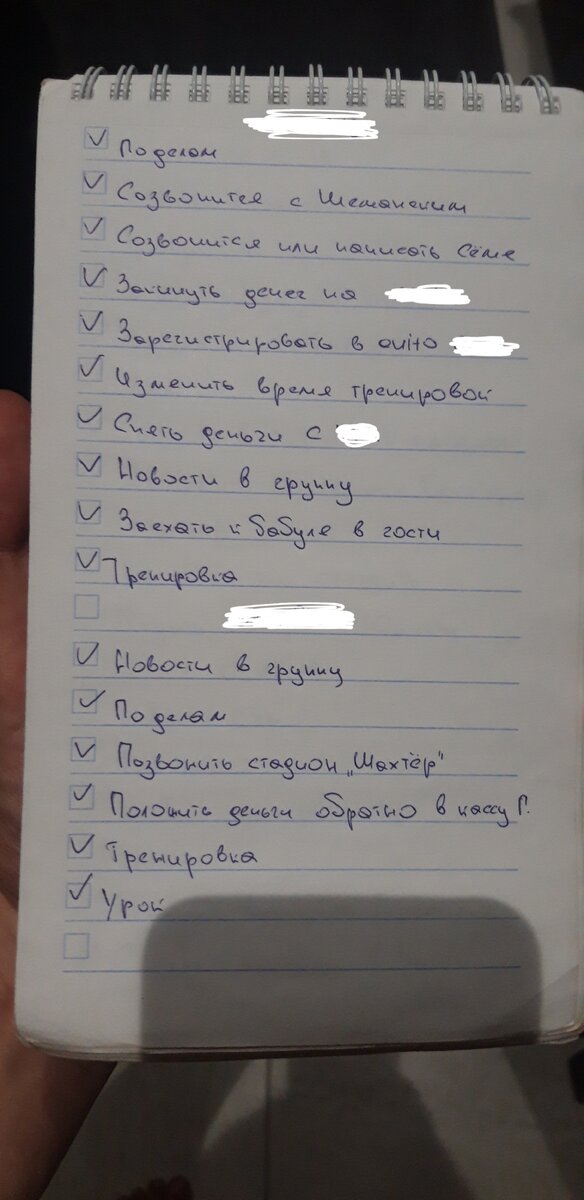 По делам
Созвонится с
Созвонится или написать Сёме
Закинуть денег на
Зарегистрировать в avito
Изменить время тренировой
Снять деньги с
Новости в группу
Заехать к бабуле в гости
Тренировка
Новости в группу
По делам
Позвонить стадион „Шахтёр"
Положить деньги обратно в кассу Г.
Тренировка
Урок